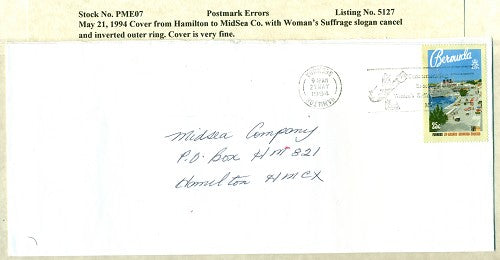 Stock No. PME07 Postmark Errors Listing No. 5127
May 21, 1994 Cover from Hamilton to MidSea Co. with Woman's Suffrage slogan cancel
and inverted outer ring. Cover is very fine.
Bermuda
25c
Midsea Company
P.O. Box HM 821
Hamilton HMCX